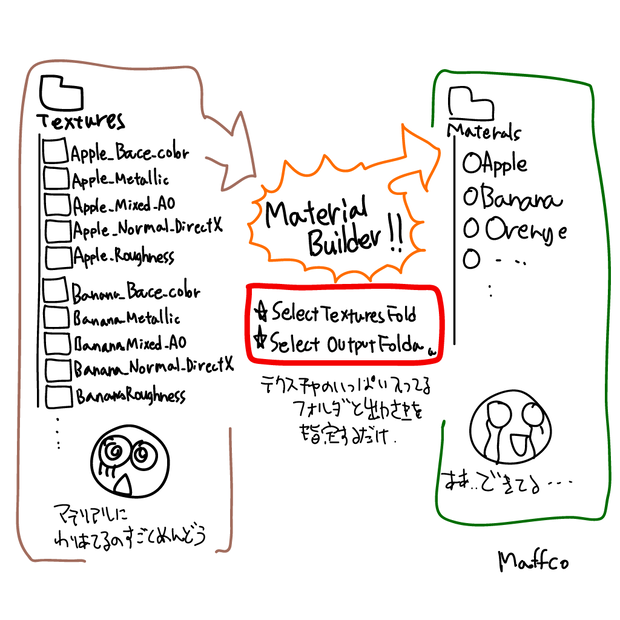 Textures
Apple_Bace_color
Apple_Metallic
Apple_Mixed_AO
Apple_Normal_DirectX
Apple_Roughness
Banana_Bace_color
Banana_Metallic
Banana_Mixed_AO
Banana_Normal_DirectX
Banana_Roughness
マテリアルに
わりあてるのすごくめんどう
Material
Builder!!
☆ Select Textures Fold
☆ Select Output Folda
テクスチャのいっぱい入ってる
フォルダと出力さきを
指定するだけ.
Materals
Apple
Banana
Orenge
ああ..できてる...
Maffco